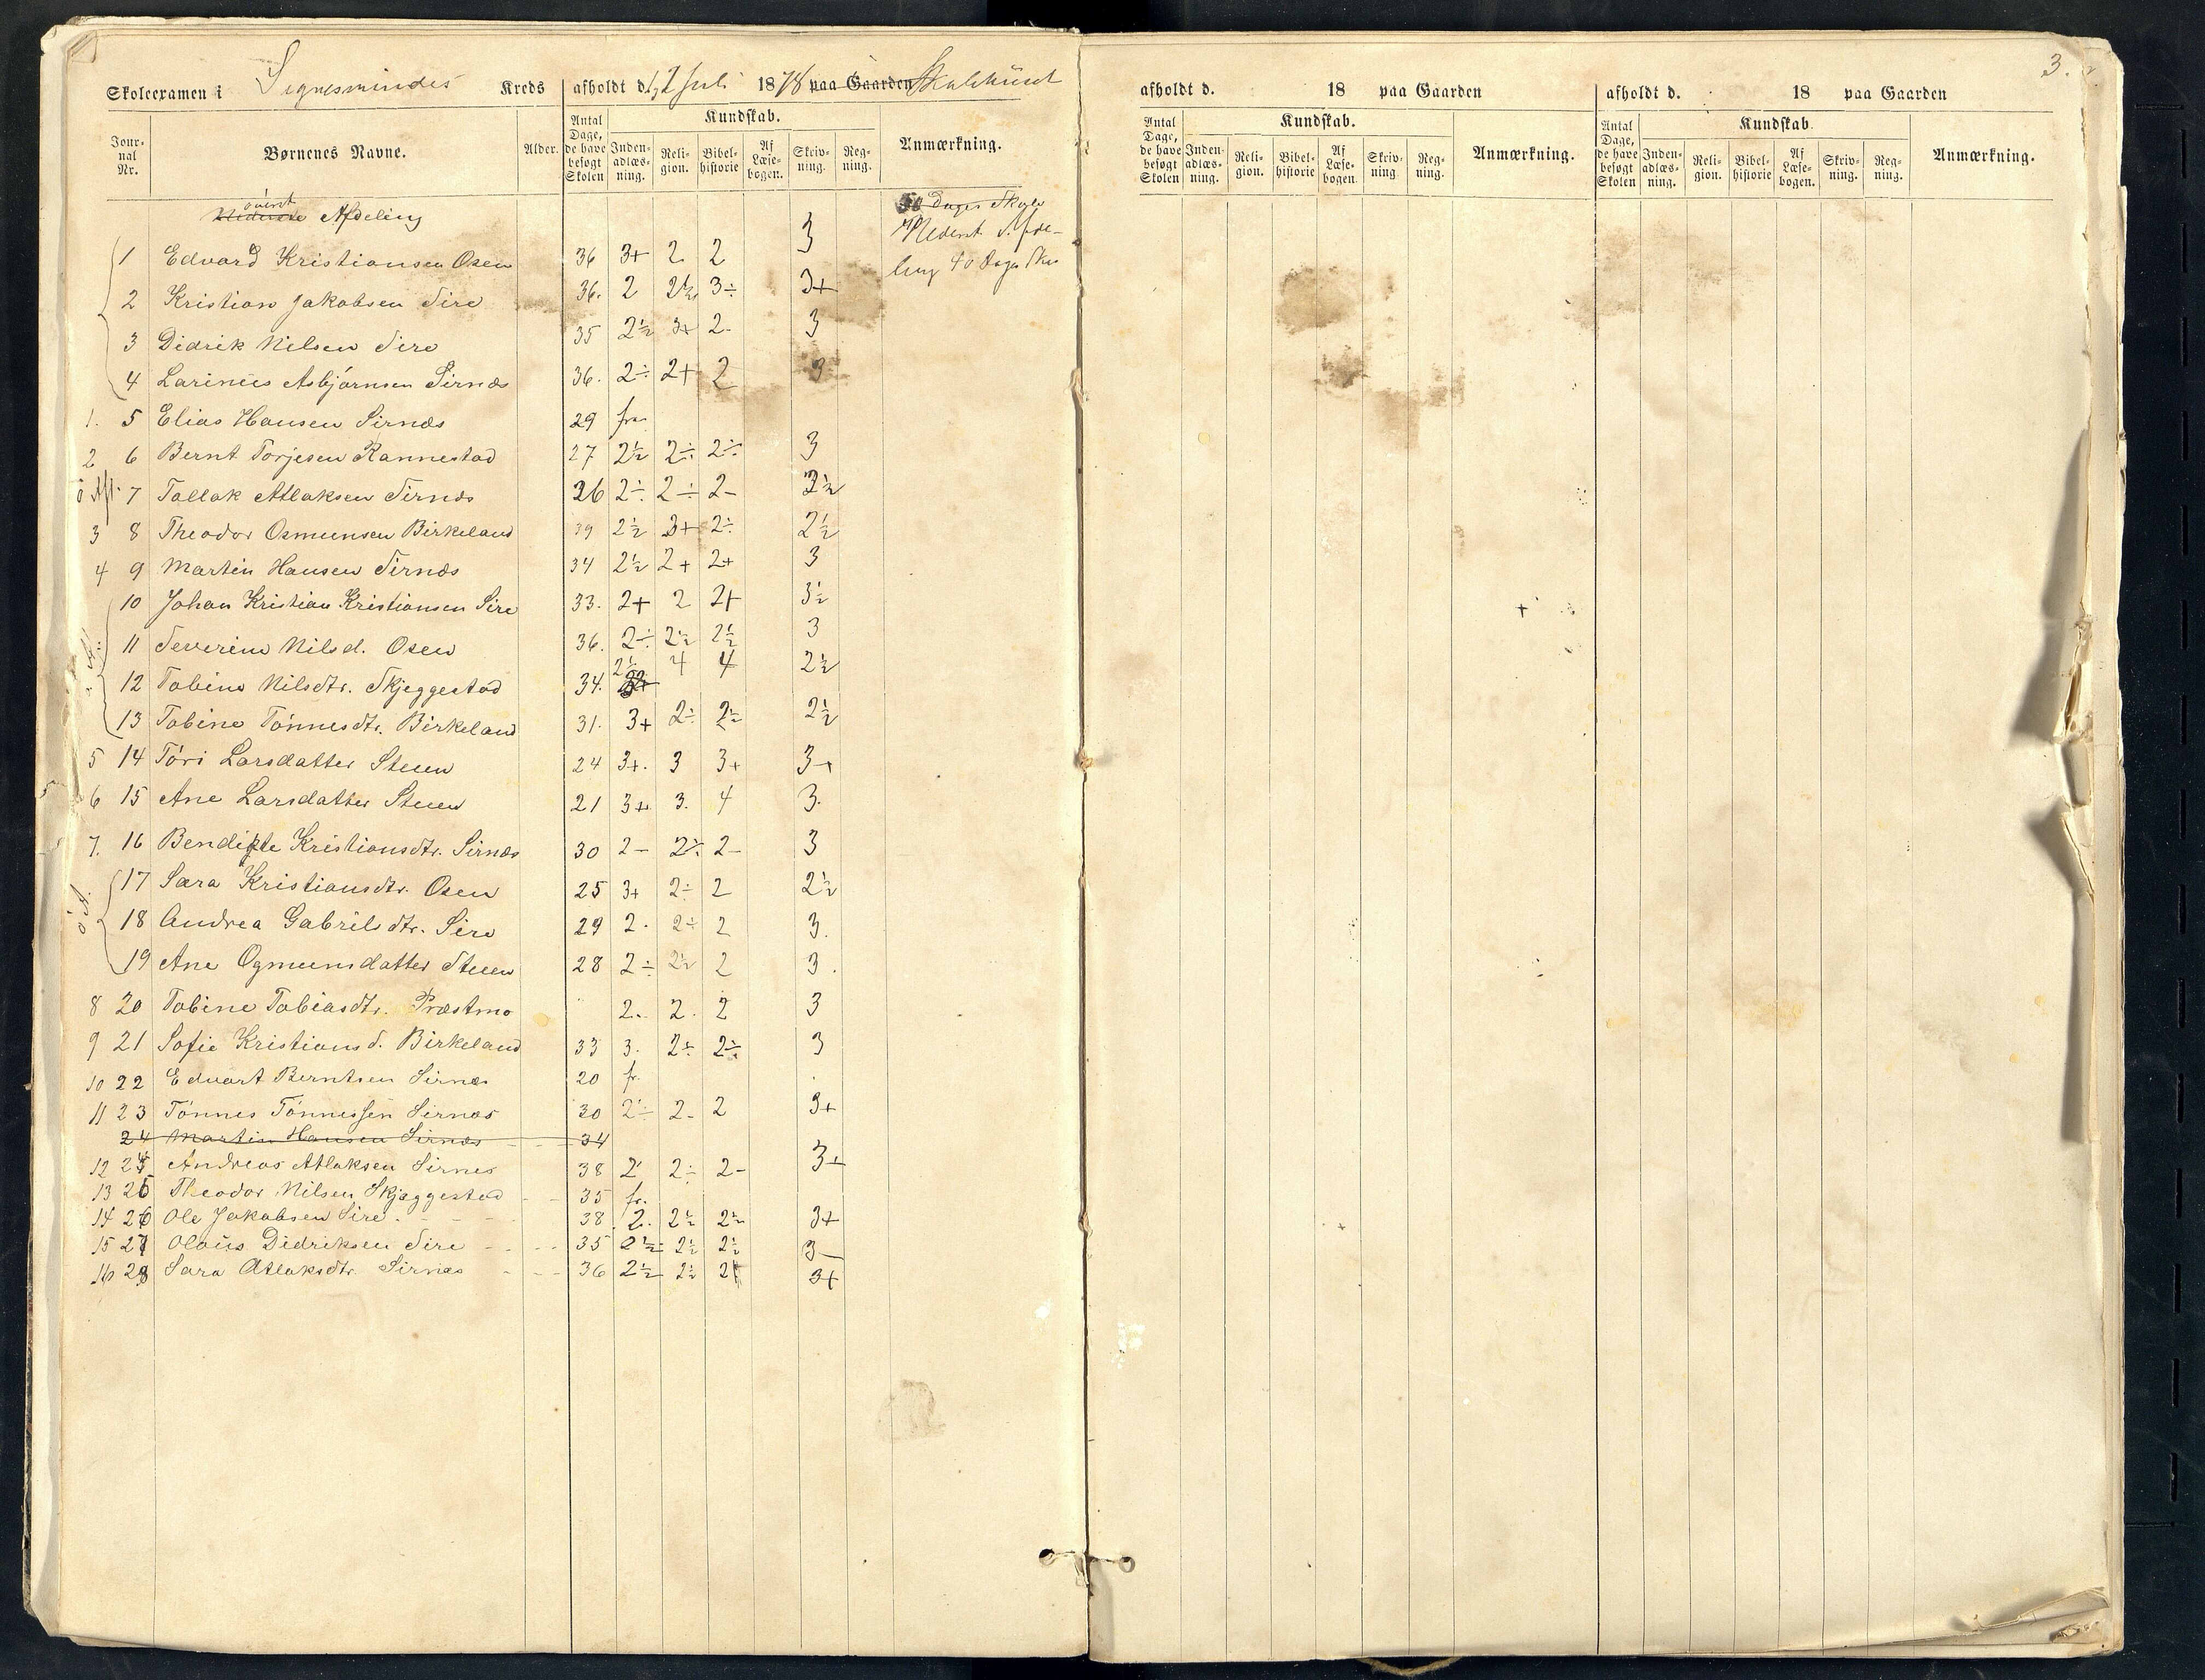 Skoleexamen i Signesmindes Kreds afholdt d. 12 Juli 1878 paa Gaarden Skolehuset
Jour-nal Nr. Børnenes Navne. Alder. Antal Dage, de have besøgt Skolen Kundskab. Inden-adlæs-ning. Reli-gion. Bibel-historie Af Læse-bogen. Skriv-ning. Reg-ning. Anmærkning.
øverst
Nederste Afdeling
50 Dages Skole
Nederst Afde-
ling 40 Dages Sko
1 Edvard Kristiansen Osen 36 3+ 2 2 3
2 Kristian Jakobsen Sire 36. 2 2½ 3÷ 3+
3 Didrik Nilsen Sire 35 2½ 3+ 2- 3
4 Larinius Asbjørnsen Sirnæs 36. 2÷ 2+ 2 3
1. 5 Elias Hansen Sirnæs 29 fr.
2 6 Bernt Torjesen Rannestad 27 2½ 2÷ 2÷ 3
ø Af. 7 Tallak Atlaksen Sirnæs 26 2÷ 2÷ 2- 2½
3 8 Theodor Osmunsen Birkeland 39 2½ 3+ 2÷ 2½
4 9 Martin Hansen Sirnæs 34 2½ 2+ 2+ 3
10 Johan Kristian Kristiansen Sire 33. 2+ 2 2+ 3½
11 Severine Nilsd. Osen 36. 2÷ 2½ 2½ 3
12 Tobine Nilsdtr. Skjeggestad 34. 2½ 4 4 2½
13 Tobine Tønnesdtr. Birkeland 31. 3+ 2÷ 2½ 2½
5 14 Tóri Larsdatter Steen 24 3+. 3 3+ 3+
6 15 Ane Larsdatter Steen 21 3+ 3. 4 3.
7. 16 Bendikte Kristiansdtr. Sirnæs 30 2- 2÷ 2- 3
ø.A. 17 Sara Kristiansdtr. Osen 25 3+ 2÷ 2 2½
18 Andrea Gabrilsdtr. Sire 29 2. 2÷ 2 3.
19 Ane Ogmunsdatter Steen 28 2÷ 2½ 2 3.
8 20 Tobine Tobiasdtr. Præstmo 2. 2. 2 3
9 21 Sofie Kristiansd. Birkeland 33 3. 2÷ 2÷ 3
10 22 Edvart Berntsen Sirnæs 20 fr.
11 23 Tønnes Tønnessen Sirnæs 30 2÷ 2- 2 3+
24 Martin Hansen Sirnæs 34
12 24 Andreas Atlaksen Sirnes 38 2 2÷ 2- 3+
13 25 Theodor Nilsen Skjæggestad 35 fr.
14 26 Ole Jakobsen Sire 38 2. 2½ 2½ 3+
15 27 Olaus Didriksen Sire 35 2½ 2½ 2½ 3-
16 28 Sara Atlaksdtr. Sirnæs 36 2½ 2½ 2+ 3+
3.
afholdt d. 18 paa Gaarden
Antal Dage, de have besøgt Skolen Kundskab. Inden-adlæs-ning. Reli-gion. Bibel-historie Af Læse-bogen. Skriv-ning Reg-ning. Anmærkning.
afholdt d. 18 paa Gaarden
Antal Dage, de have besøgt Skolen Kundskab. Inden-adlæs-ning. Reli-gion. Bibel-historie Af Læse-bogen. Skriv-ning. Reg-ning. Anmærkning.